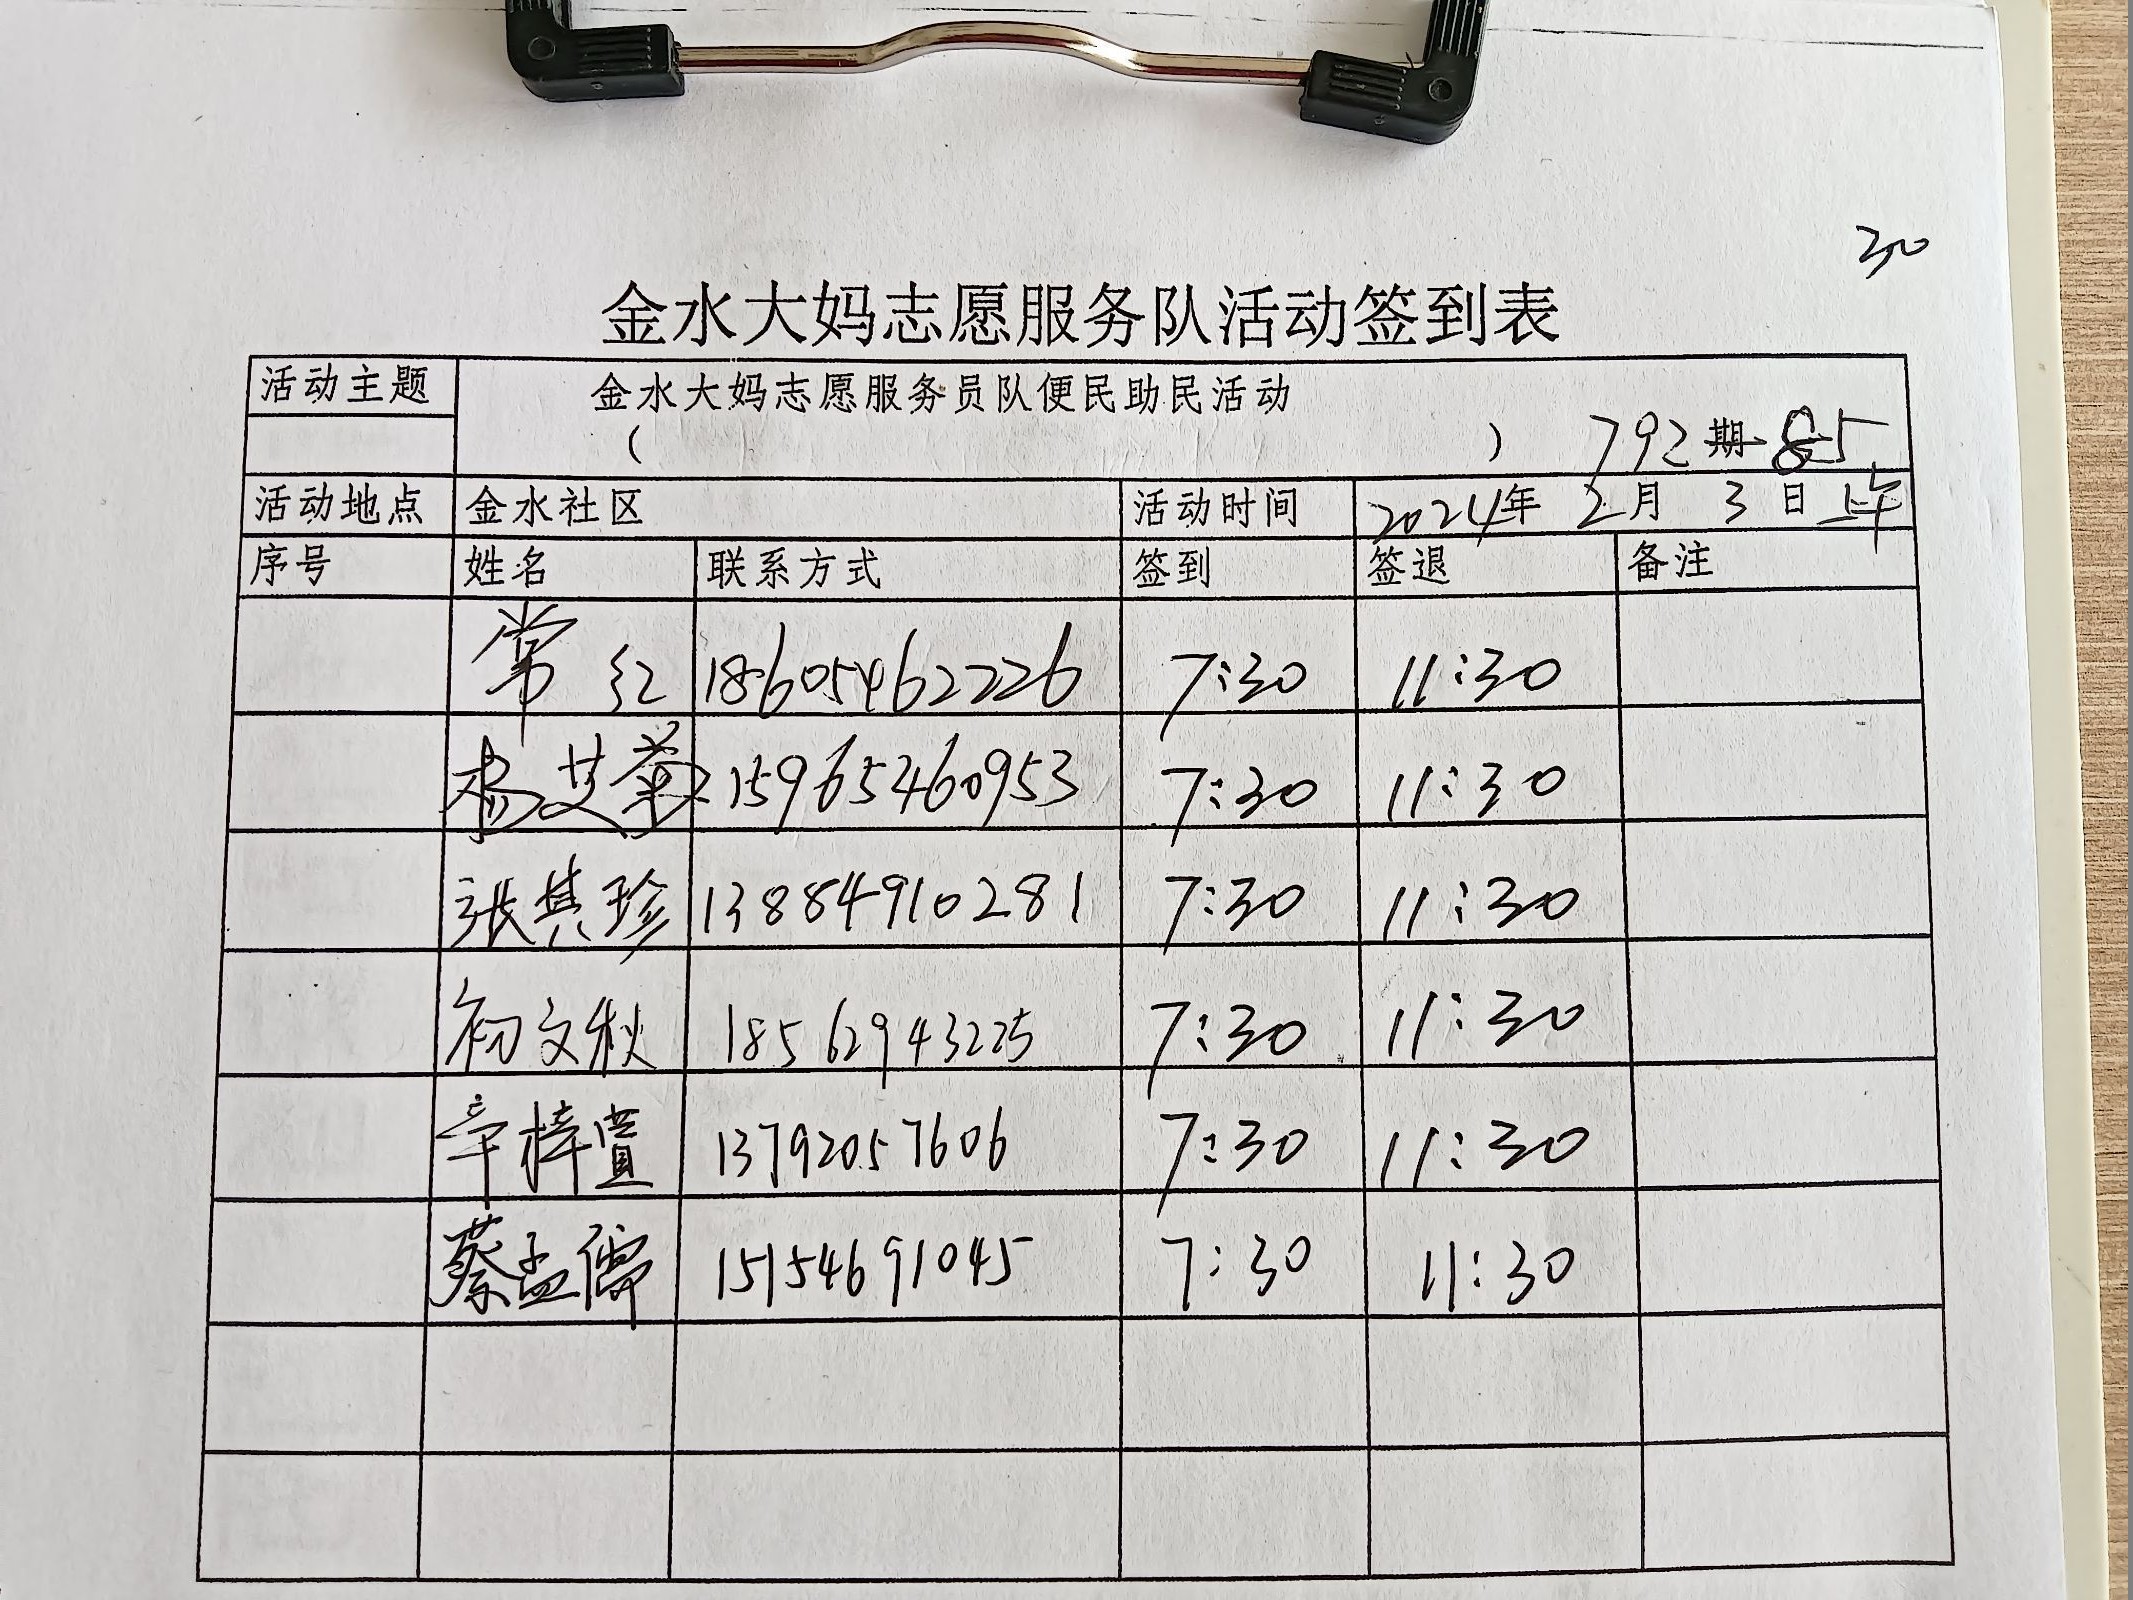 30
金水大妈志愿服务队活动签到表
活动主题 金水大妈志愿服务员队便民助民活动
( ) 792期-85
活动地点 金水社区 活动时间 2024年 2月 3日 上午
序号 姓名 联系方式 签到 签退 备注
常红 18605462226 7:30 11:30
杨艾菊 15965460953 7:30 11:30
张其珍 13884910281 7:30 11:30
初文秋 18562943225 7:30 11:30
辛梓萱 13792057606 7:30 11:30
蔡孟儒 15154691045 7:30 11:30